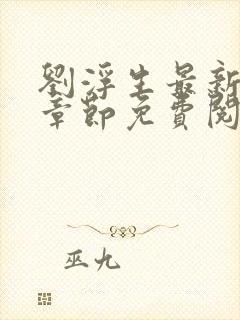 劉浮生最新
章節免費閱
巫九